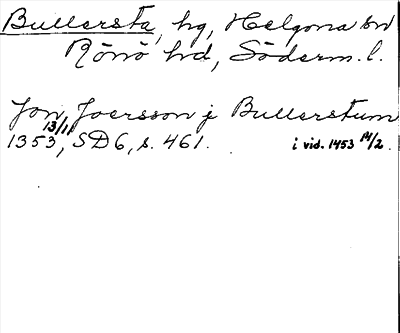 Bullersta, hg, Helgona sn
Rönö hd, Söderm. l.
Jon Joersson j Bullerstum
1353 13/11, SD 6, s. 461. i vid. 1453 14/2.